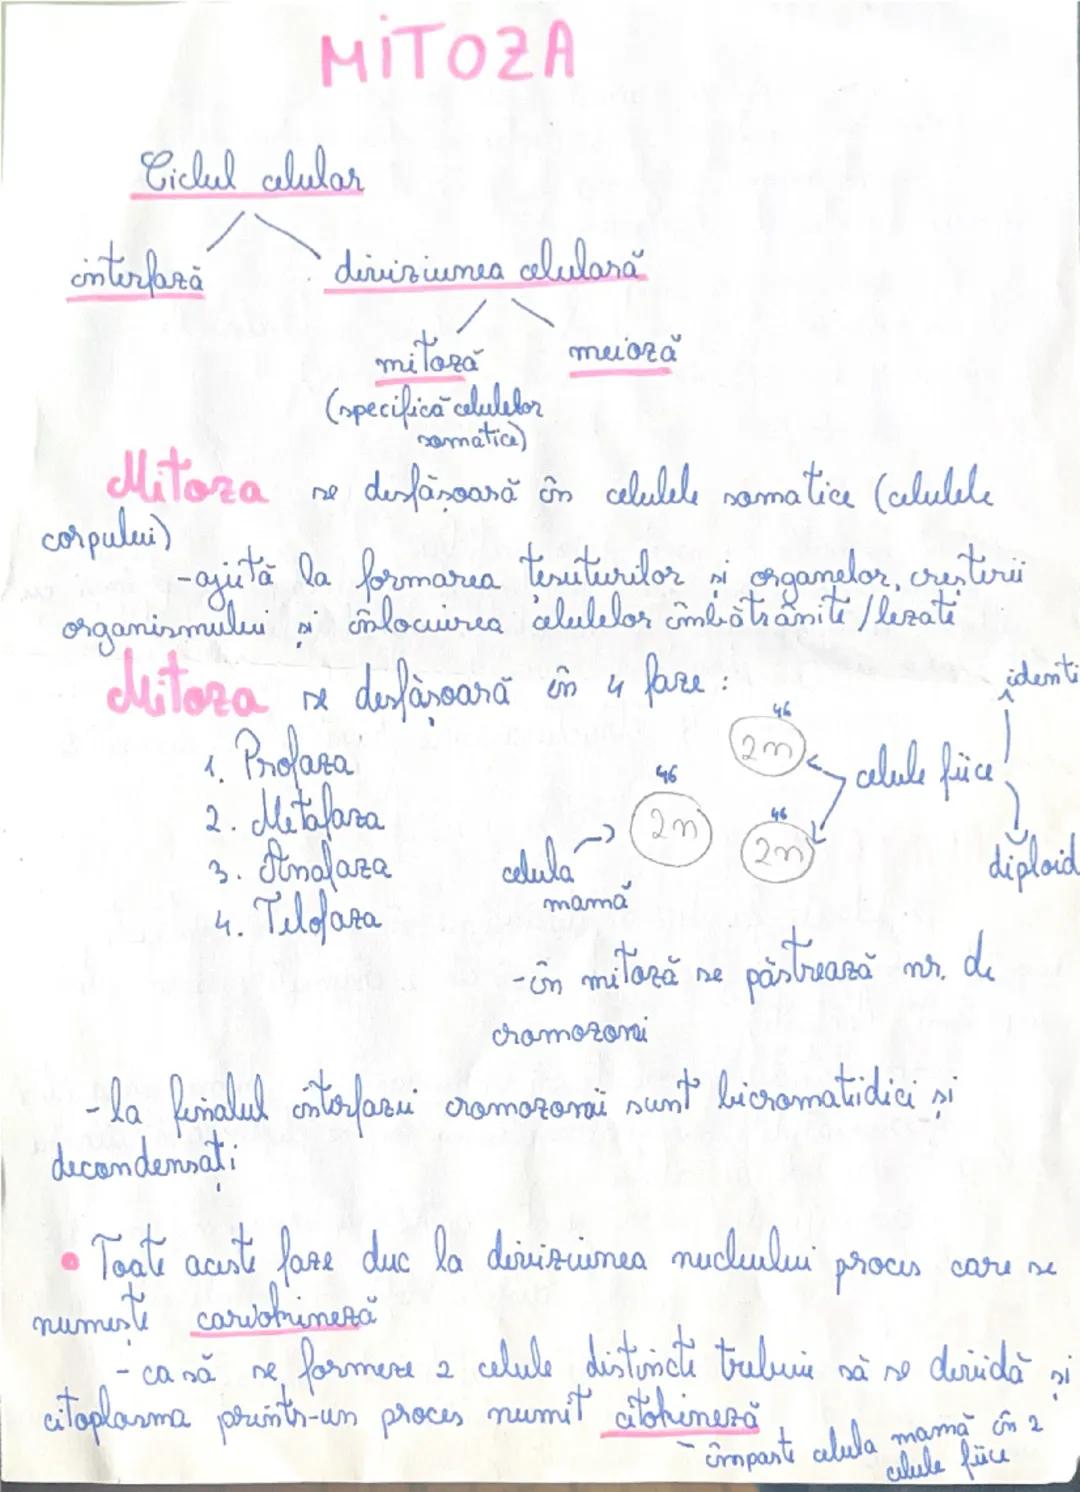 MiTOZA
Ciclul celular
interfază diviziunea celulară
mitoză meioză
(specifică celulelor
somatice)
Mitoza se desfășoară în celulele somatice (celulele
corpului)
-ajută la formarea țesuturilor și organelor, creșterii
organismului și înlocuirea celulelor îmbătrânite/lezate
Mitoza se desfășoară în 4 faze:
identi
46
1. Profaza
2n
celule fiice
46
2. Metafaza
2n
46
2n
3. Anafaza
celula
mamă
diploid
4. Telofaza
-în mitoză se păstrează nr. de
cromozomi
-la finalul interfazei cromozomii sunt bicromatidici și
decondensați
• Toate aceste faze duc la diviziunea nucleului proces care se
numește cariokineză
-ca să se formeze 2 celule distincte trebuie să se dividă și
citoplasma printr-un proces numit citokineză
- împarte celula mamă în 2
celule fiice